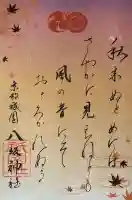 秋来ぬとめには
さやかに見えねども
風の音にそ
おどろかれぬる
京都祇園
八坂神社